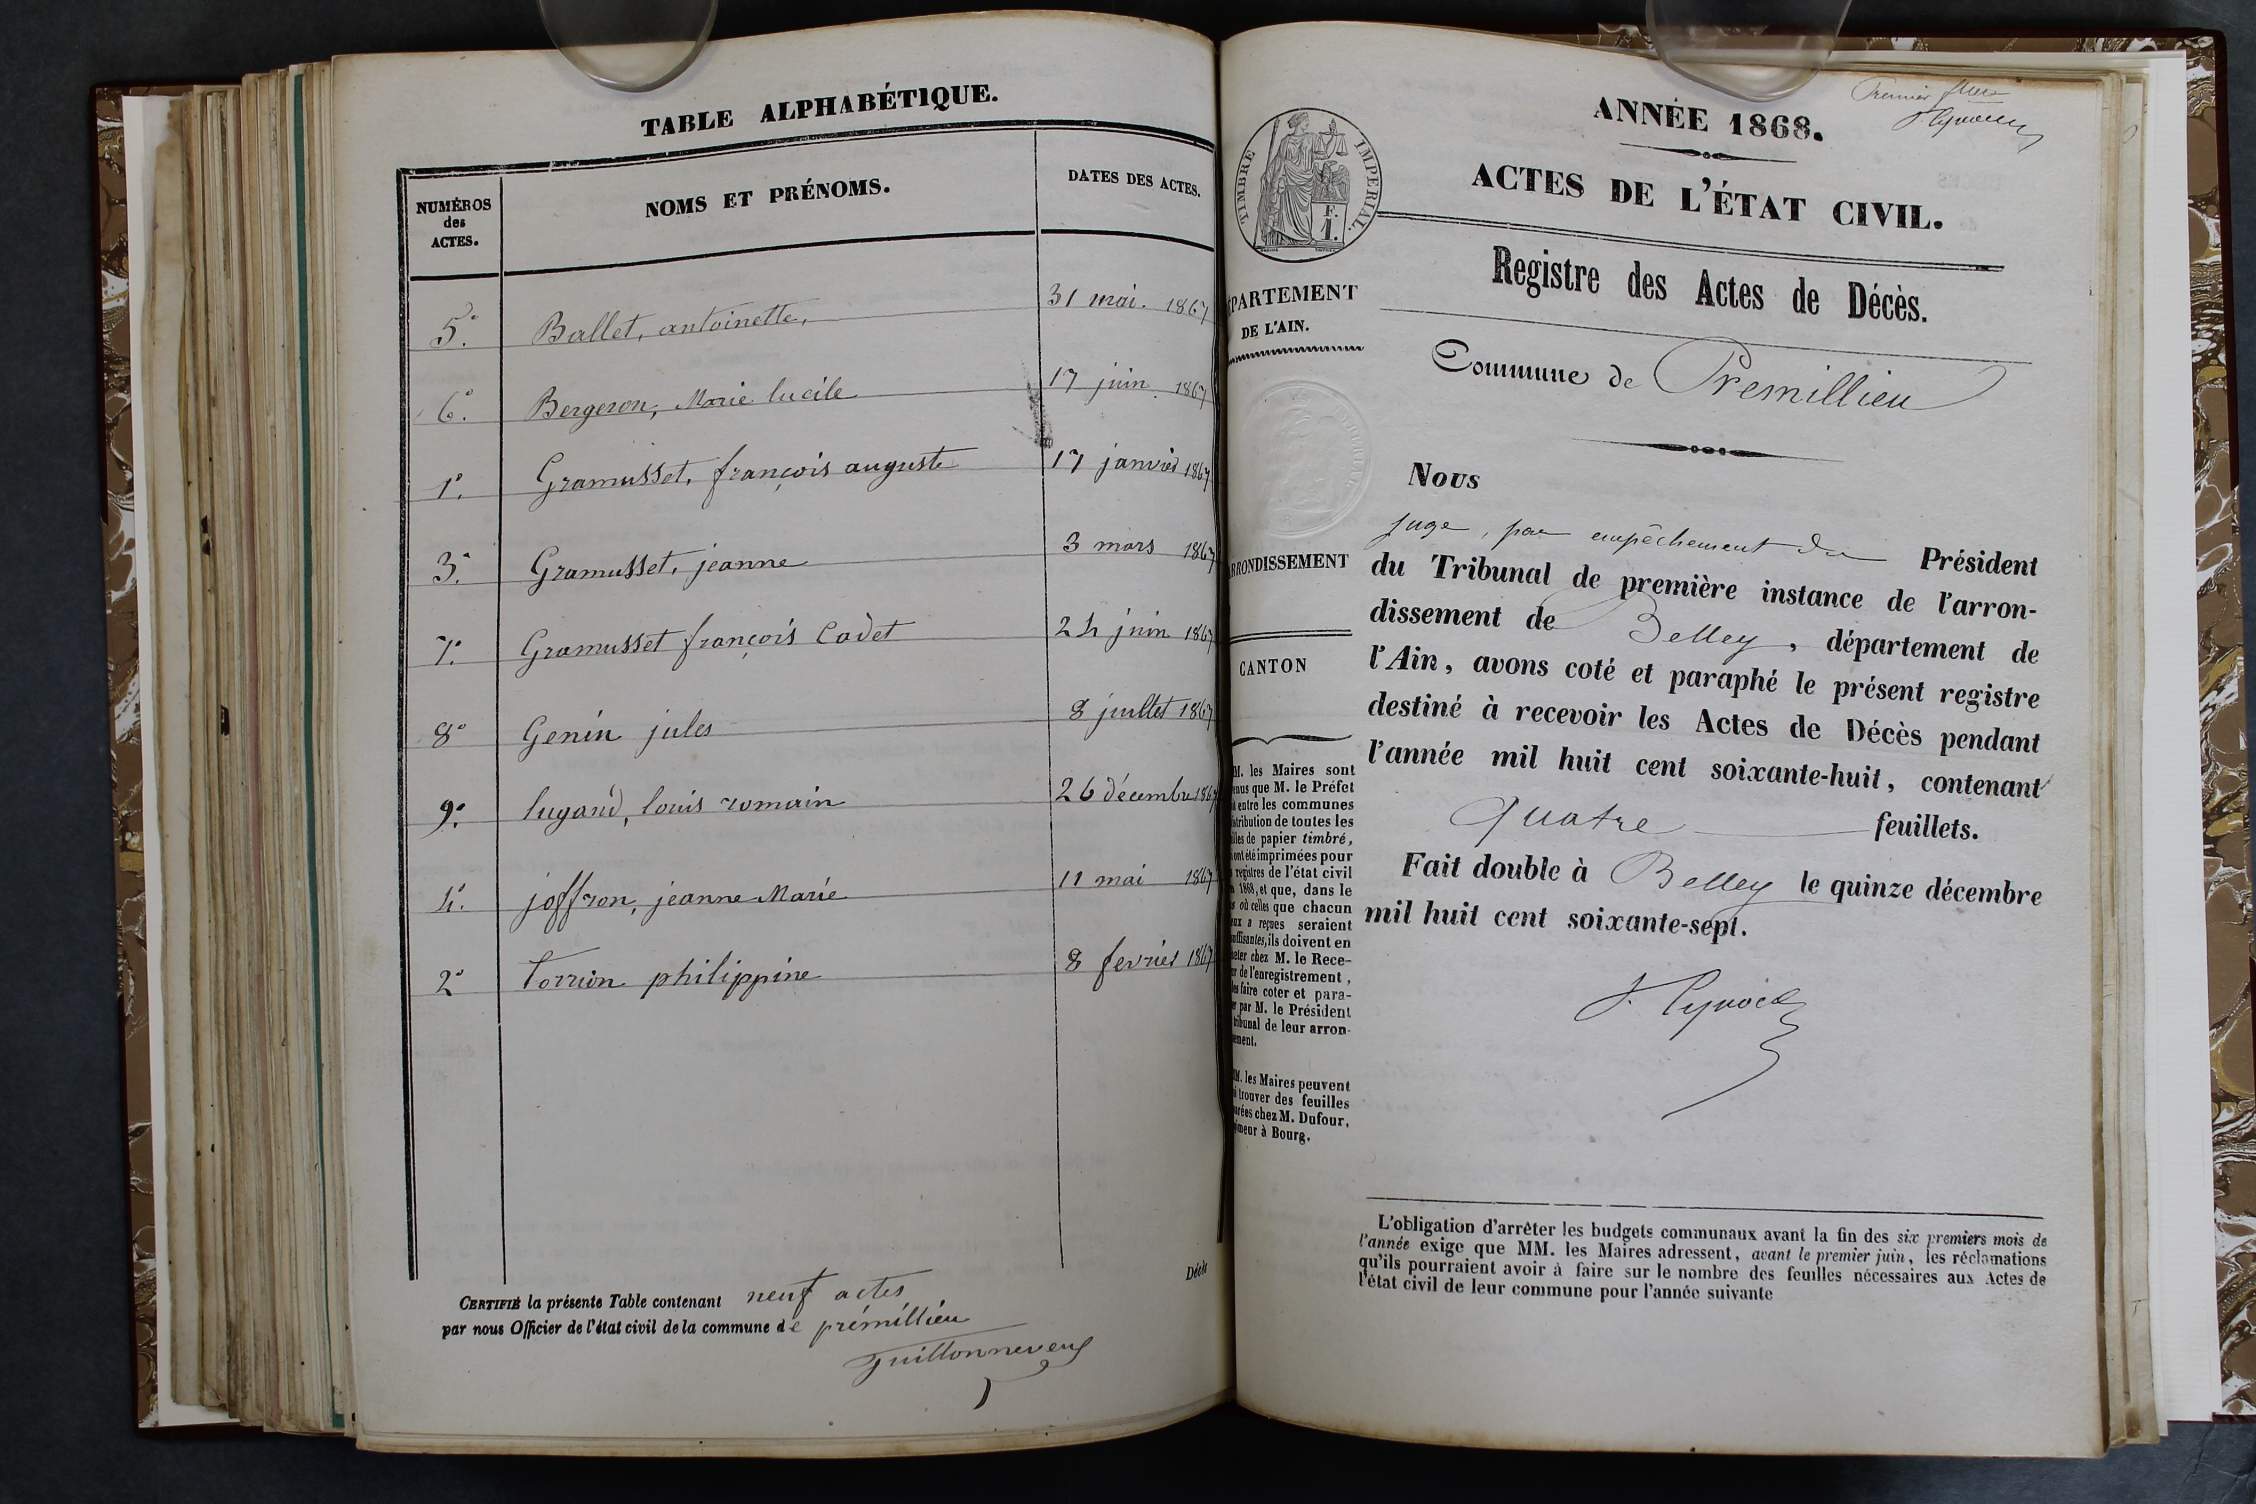 TABLE ALPHABÉTIQUE.
NUMÉROS
des
ACTES.
NOMS ET PRÉNOMS.
DATES DES ACTES.
5° Ballet, antoinette, 31 mai. 1867
6° Bergeron, Marie lucile 17 juin 1867
1° Gramusset, françois auguste 17 janvier 1867
3° Gramusset, jeanne 3 mars 1867
7° Gramusset françois Cadet 24 juin 1867
8° Genin jules 8 juillet 1867
9° lugand, louis romain 26 décembre 1867
4° joffron, jeanne Marie 11 mai 1867
2° torrion philippine 8 fevrier 1867
Décès
CERTIFIÉ la présente Table contenant neuf actes
par nous Officier de l'état civil de la commune de prémillieu
Premier
ANNÉE 1868.
ACTES DE L'ÉTAT CIVIL.
TIMBRE IMPERIAL.
F.
1.
Registre des Actes de Décès.
PARTEMENT
DE L'AIN.
Commune de Premillieu
RRONDISSEMENT
CANTON
Nous
juge, par empêchement du Président
du Tribunal de première instance de l'arron-
dissement de Belley, département de
l'Ain, avons coté et paraphé le présent registre
destiné à recevoir les Actes de Décès pendant
l'année mil huit cent soixante-huit, contenant
quatre feuillets.
Fait double à Belley le quinze décembre
mil huit cent soixante-sept.
M. les Maires sont
enus que M. le Préfet
a entre les communes
stribution de toutes les
illes de papier timbré,
ont été imprimées pour
registres de l'état civil
1868, et que, dans le
s où celles que chacun
eux a reçues seraient
uffisantes, ils doivent en
heter chez M. le Rece-
ur de l'enregistrement,
les faire coter et para-
er par M. le Président
tribunal de leur arron-
sement.
M. les Maires peuvent
i trouver des feuilles
arées chez M. Dufour,
imeur à Bourg.
L'obligation d'arrêter les budgets communaux avant la fin des six premiers mois de
l'année exige que MM. les Maires adressent, avant le premier juin, les réclamations
qu'ils pourraient avoir à faire sur le nombre des feuilles nécessaires aux Actes de
l'état civil de leur commune pour l'année suivante